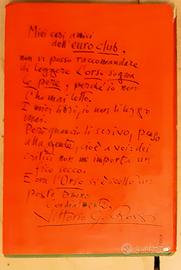 Miei cari amici
dell'euroclub,
non vi posso raccomandare
di leggere L'orso sogna
le pere, perché io non
l'ho mai letto.
I miei libri, io non li leggo
mai.
Però quando li scrivo, penso
alla gente, cioè a voi: dei
critici non me importa un
fico secco.
E ora l'Orso s'è scelto un
posto buono.
Cordialmente
Vittorio G. Rossi